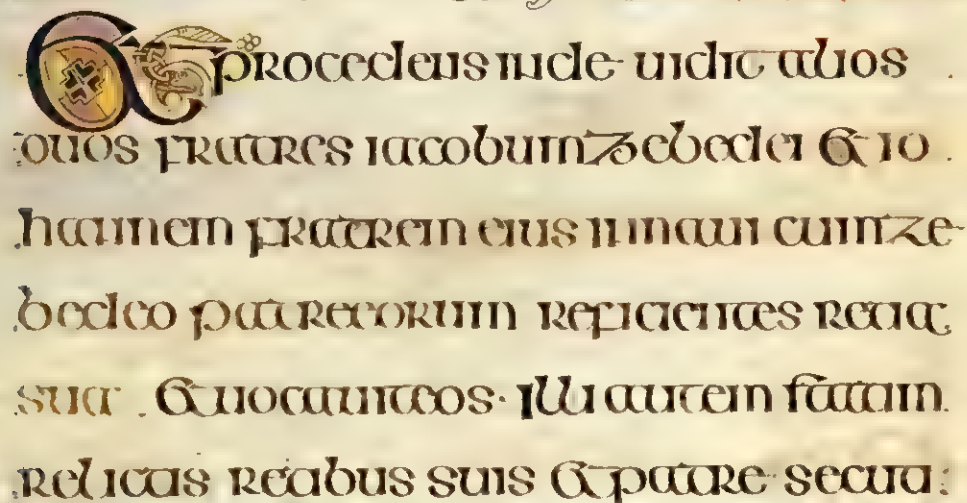 Et procedens inde uidit alios
duos fratres iacobum zebedei et io
hannem fratrem eius in naui cum ze
bedeo patre eorum reficientes retia
sua . et uocauit eos · illi autem statim
relictis retibus suis et patre secuti :